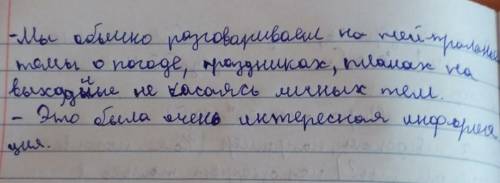 -Мы обычно разговариваем на нейтральные
темы о погоде, праздниках, планах на
выходные не касаясь личных тем.
- Это была очень интересная информа
ция.